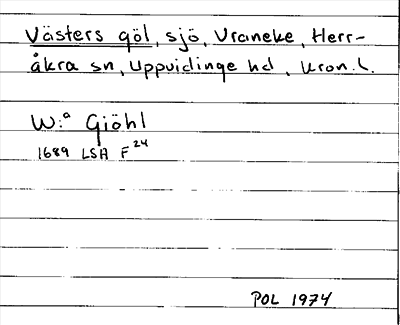 Västers göl, sjö, Uraneke, Herr-
åkra sn, Uppvidinge hd, Kron. l.
W:a Giöhl
1689 LSA F24
POL 1974